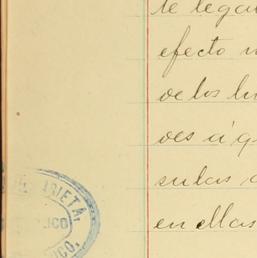 te legal
efecto
de los
des á q
sulas
en ellas
RIETA,
ICO
ICO.